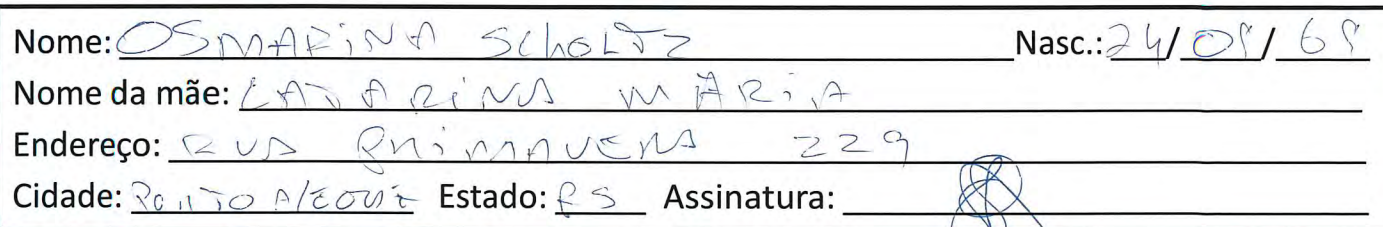 Nome: OSMARINA SCHOLTZ Nasc.: 24/08/68
Nome da mãe: CATARINA MARIA
Endereço: RUA PRIMAVERA 229
Cidade: PORTO ALEGRE Estado: RS Assinatura: